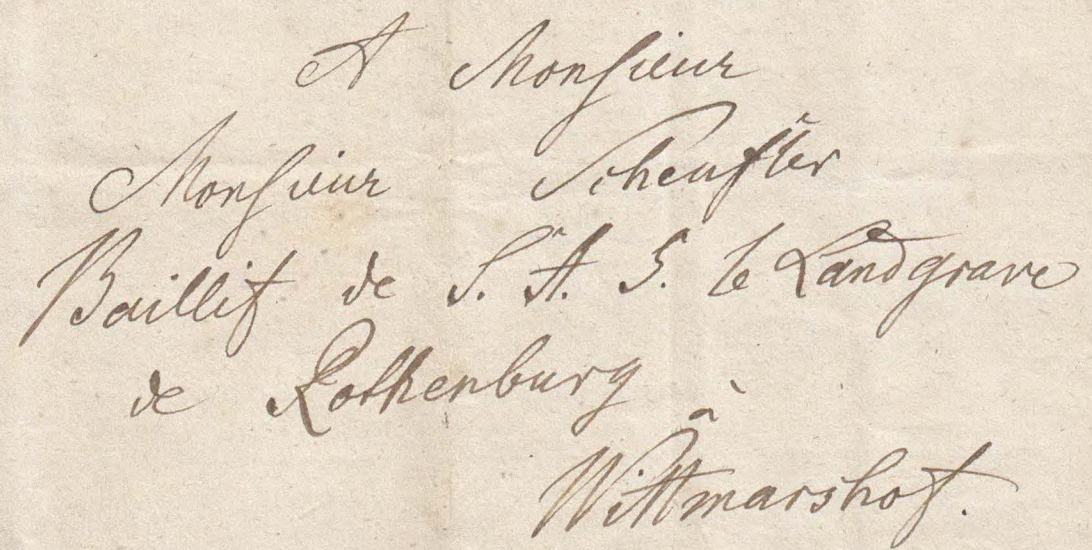 A Monsieur
Monsieur Scheuffler
Baillif de S. A. S. le Landgrave
de Rothenburg
à
Wittmarshof.